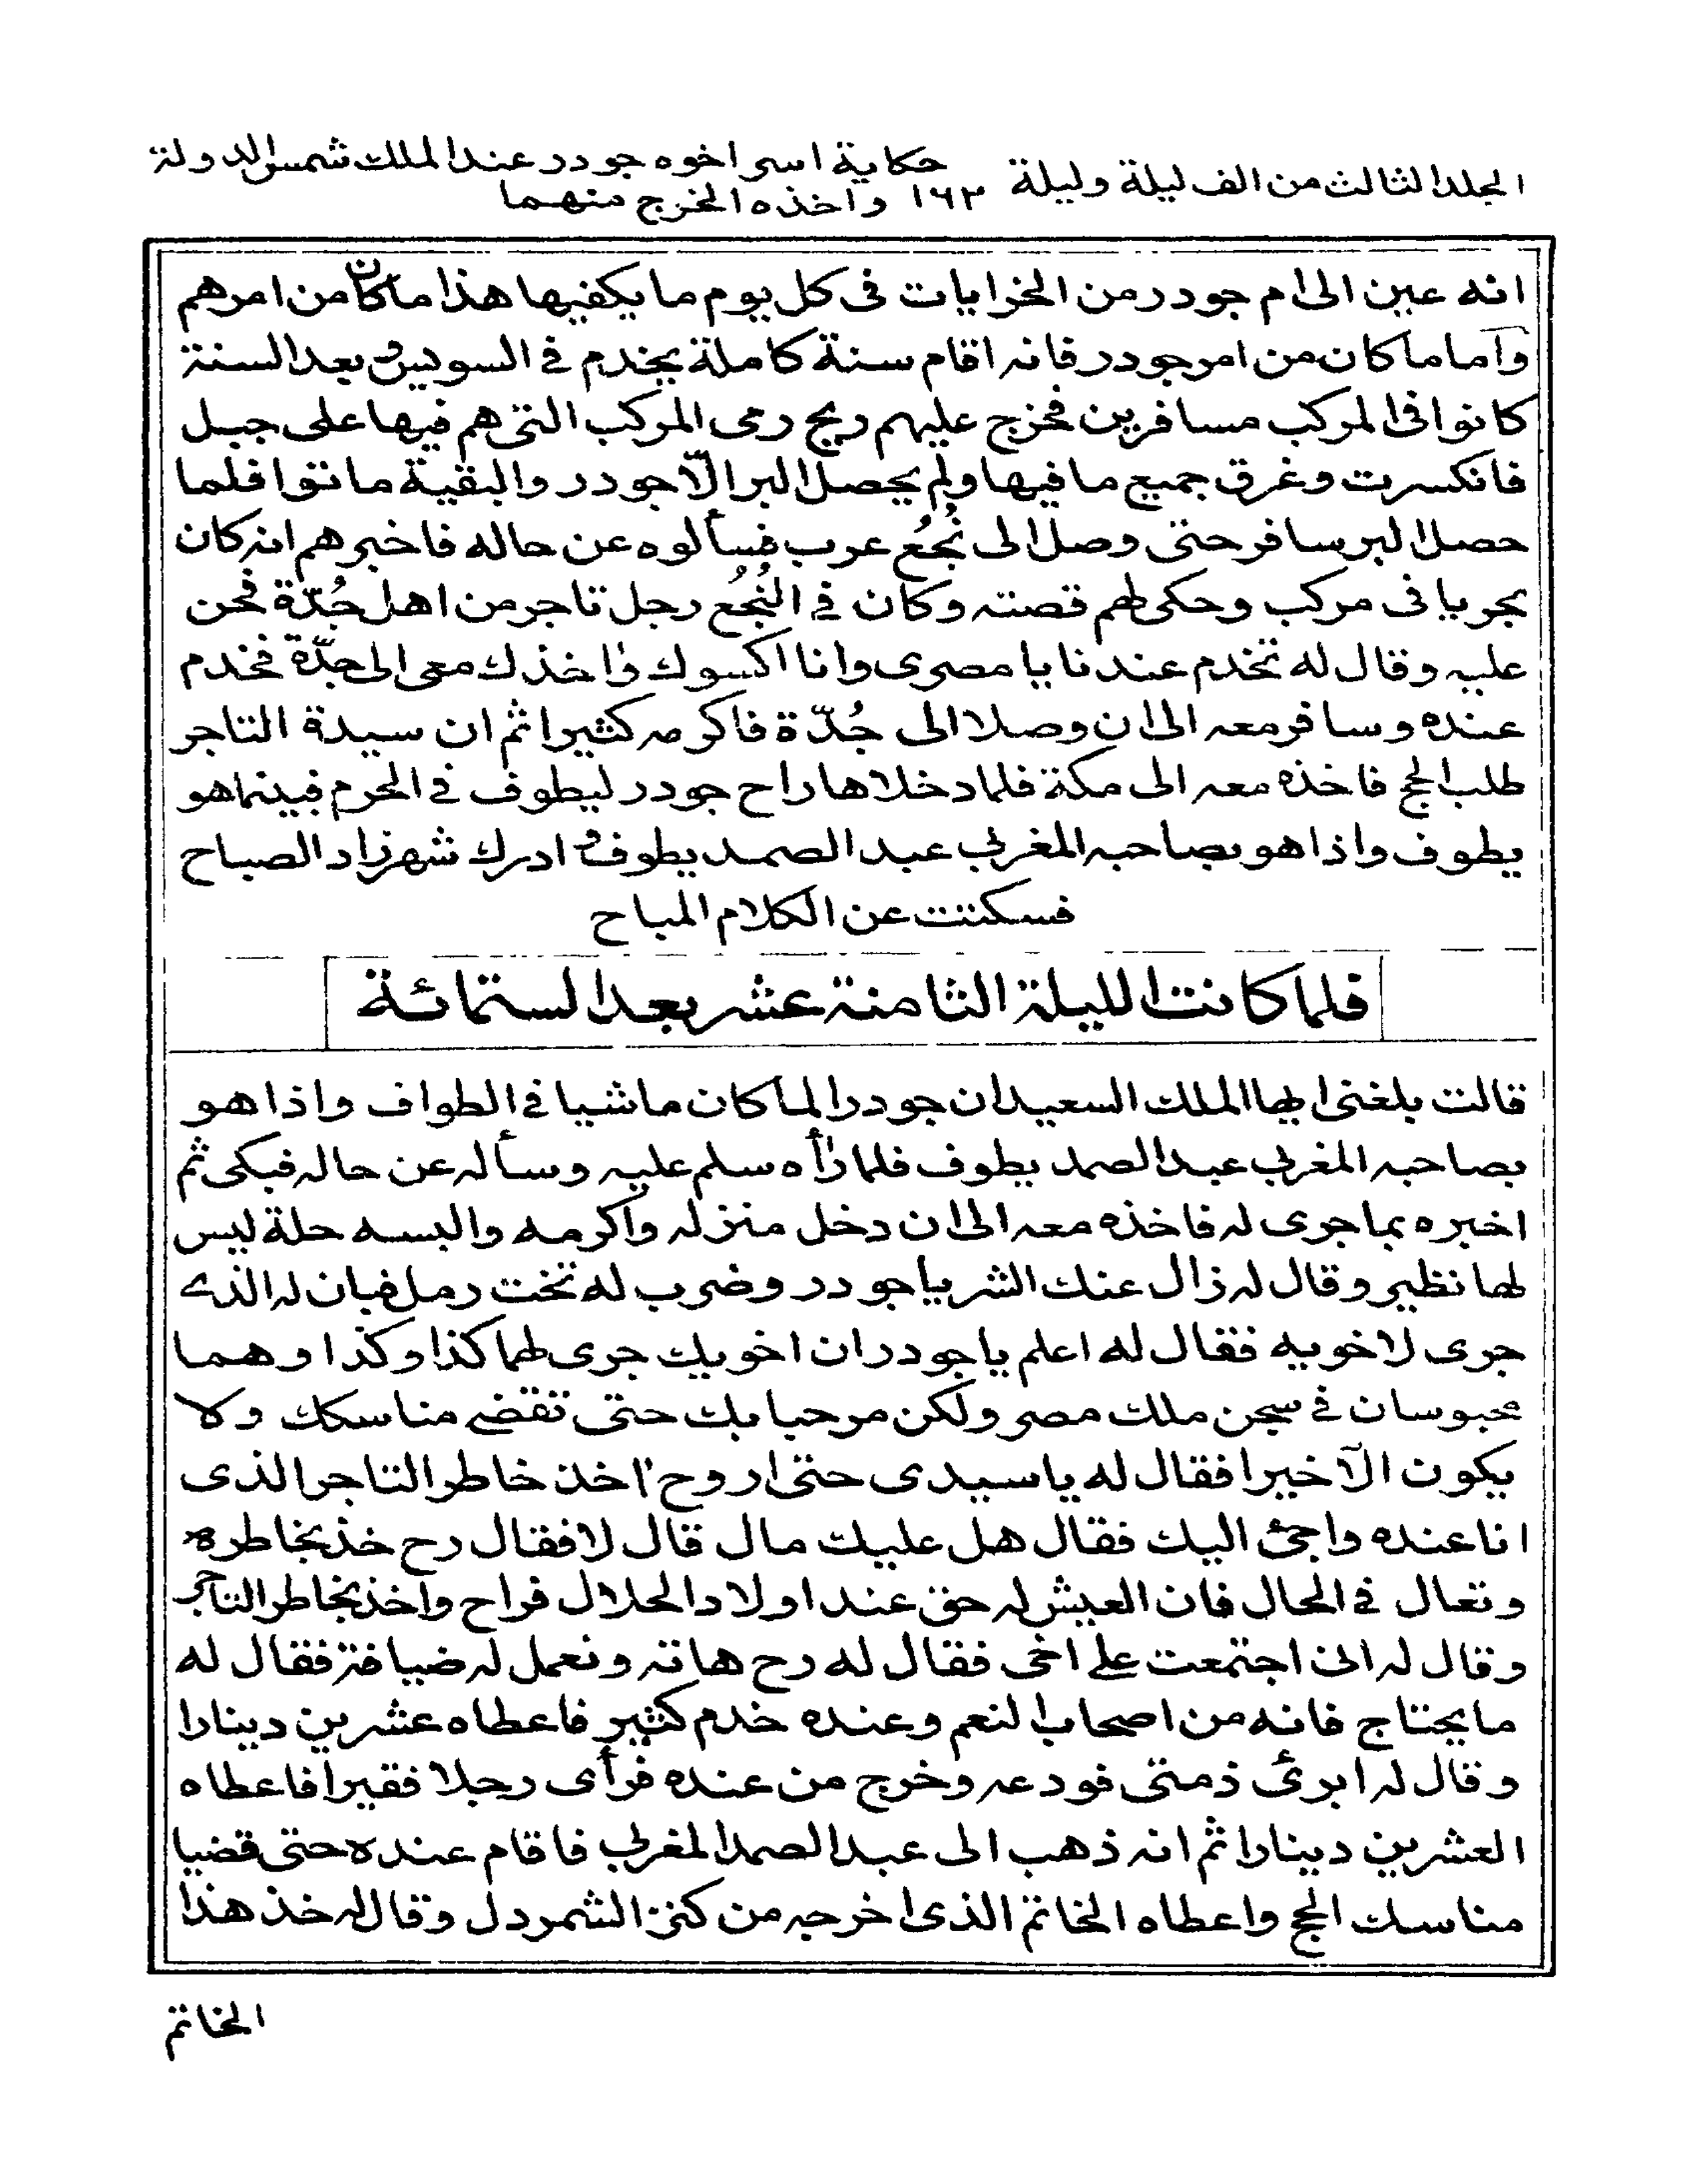 المجلد الثالث من الف ليلة وليلة ١٦٣ حكاية اسر اخوه جودر عند الملك شمس الدولة
واخذه الخرج منهما
انه عين الى ام جودر من الخرايات فى كل يوم ما يكفيها هذا ما كان من امرهم
وأما ما كان من امر جودر فانه اقام سنة كاملة يخدم فى السويس وبعد السنة
كانوا فى المركب مسافرين فخرج عليهم ريح رمى المركب التى هم فيها على جبل
فانكسرت وغرق جميع ما فيها ولم يحصل البر الّا جودر والبقية ماتوا فلما
حصل البر سافر حتى وصل الى نُجُع عرب فسألوه عن حاله فاخبرهم انه كان
بحريا فى مركب وحكى لهم قصته وكان فى النُجُع رجل تاجر من اهل جُدّة فحن
عليه وقال له تخدم عندنا يا مصرى وانا اكسوك وأخذك معى الى جدّة فخدم
عنده وسافر معه الى ان وصلا الى جُدّة فاكرمه كثيرا ثم ان سيدة التاجر
طلب الحج فاخذه معه الى مكة فلما دخلاها راح جودر ليطوف فى الحرم فبينما هو
يطوف واذا هو بصاحبه المغربى عبد الصمد يطوف وادرك شهرزاد الصباح
فسكتت عن الكلام المباح
فلما كانت الليلة الثامنة عشر بعد الستمائة
قالت بلغنى ايها الملك السعيد ان جودرا لما كان ماشيا فى الطواف واذا هو
بصاحبه المغربى عبد الصمد يطوف فلما رأه سلم عليه وسأله عن حاله فبكى ثم
اخبره بما جرى له فاخذه معه الى ان دخل منزله واكرمه والبسه حلة ليس
لها نظير وقال له زال عنك الشر يا جودر وضرب له تخت رمل فبان له الذى
جرى لاخويه فقال له اعلم يا جودر ان اخويك جرى لهما كذا وكذا وهما
محبوسان فى سجن ملك مصر ولكن مرحبا بك حتى تقضى مناسكك ولا
يكون الّا خيرا فقال له يا سيدى حتى اروح اخذ خاطر التاجر الذى
انا عنده واجئ اليك فقال هل عليك مال قال لا فقال رح خذ بخاطره
وتعال فى الحال فان العيش له حق عند اولاد الحلال فراح واخذ بخاطر التاجر
وقال له انى اجتمعت على اخى فقال له رح هاته ونعمل له ضيافة فقال له
ما يحتاج فانه من اصحاب النعم وعنده خدم كثير فاعطاه عشرين دينارا
وقال له ابرئ ذمتى فودعه وخرج من عنده فرأى رجلا فقيرا فاعطاه
العشرين دينارا ثم انه ذهب الى عبد الصمد المغربى فاقام عنده حتى قضيا
مناسك الحج واعطاه الخاتم الذى اخرجه من كنز الشمردل وقال له خذ هذا
الخاتم